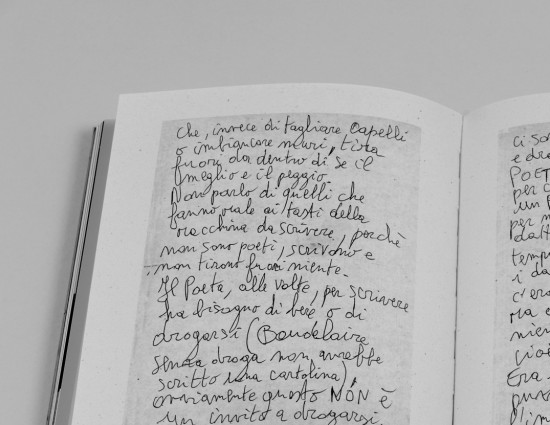 che, invece di tagliare Capelli
o imbiancare muri, tira
fuori da dentro di se il
meglio e il peggio
Non parlo di quelli che
fanno male ai tasti della
macchina da scrivere, perchè
non sono poeti, scrivono e
non tirano fuori niente.
Il Poeta, alle volte, per scrivere
ha bisogno di bere o di
drogarsi (Baudelaire
senza droga non avrebbe
scritto una cartolina),
ovviamente questo NON è
un invito a drogarsi.
ci so
e dro
POET
per c
un P
per m
dall
tempo
i da
c'era
ma e
nien
cioè
Era